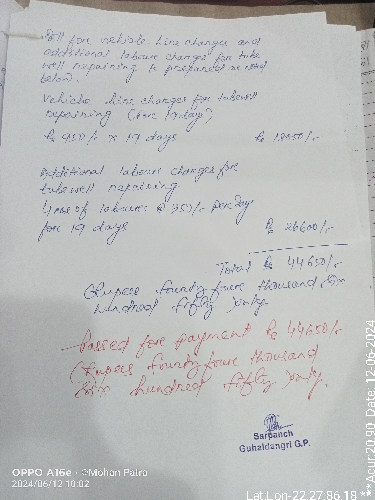 Bill for vehicle hire charges and
additional labour charges for tube
well repairing is prepared as read
below.
Vehicle hire charges for tubewell
repairing (for 19 days)
Rs 950/- x 19 days Rs 18050/-
Additional labour charges for
tubewell repairing
4 nos of labours @ 350/- per day
for 19 days Rs 26600/-
Total Rs 44650/-
(Rupees fourty four thousand Six
hundred fifty only
Passed for payment Rs 44650/-
(Rupees fourty four thousand
Six hundred fifty only.
Sarpanch
Guhaldangri G.P.
OPPO A16e ©Mohan Patra
2024/06/12 10:02
Lat Lon-22.27:86.18 ***Acur:20.90, Date, 12-06-2024